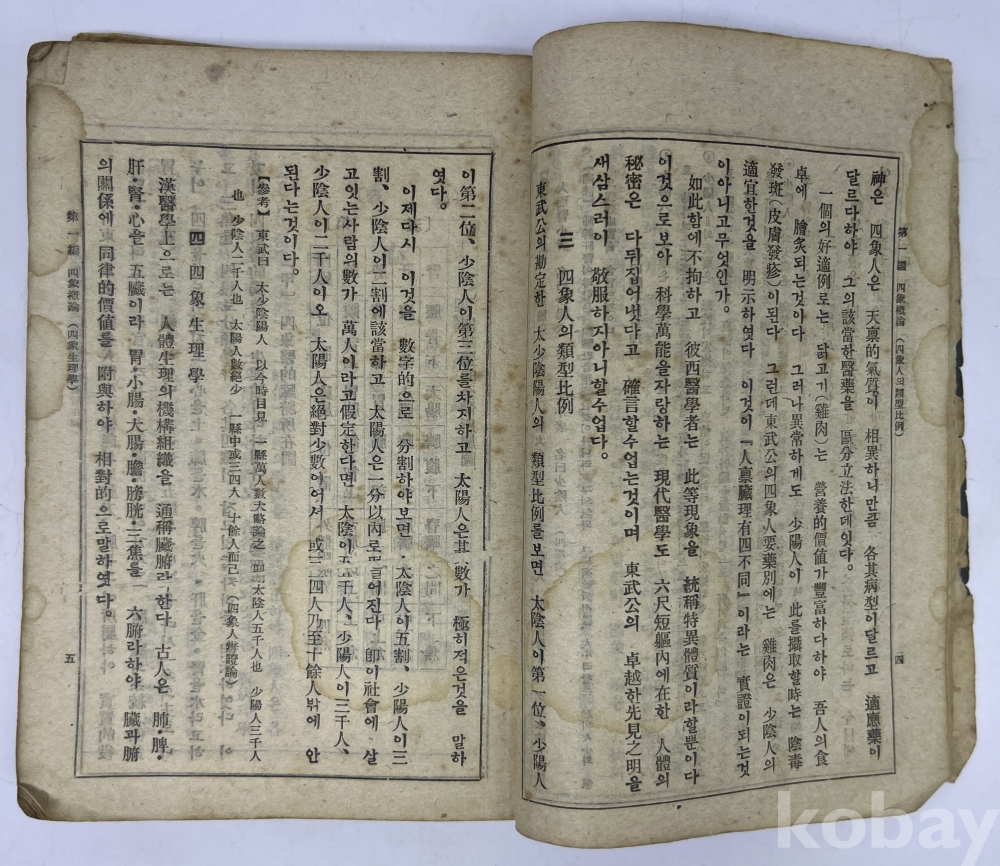 第一編 四象概論 (四象人의類型比例)
四
神은 四象人은 天禀的氣質이 相異하니만큼 各其病型이달르고 適應藥이
달르다하야 그의該當한醫藥을 區分立法한데잇다。
一個의好適例로는 닭고기(雞肉)는 營養的價値가豐富하다하야 吾人의食
卓에 膾炙되는것이다 그러나異常하게도 少陽人이 此를攝取할時는 陰毒
發斑(皮膚發疹)이된다 그런데東武公의四象人要藥別에는 雞肉은 少陰人의
適宜한것을 明示하엿다 이것이『人禀臟理有四不同』이라는 實證이되는것
이아니고무엇인가。
如此함에不拘하고 彼西醫學者는 此等現象을 統稱特異體質이라할뿐이다
이것으로보아 科學萬能을자랑하는 現代醫學도 六尺短軀內에在한 人體의
秘密은 다뒤집어냇다고 確言할수업는것이며 東武公의 卓越한先見之明을
새삼스러이 敬服하지아니할수업다。
三 四象人의類型比例
東武公의勘定한 太少陰陽人의 類型比例를보면 太陰人이第一位、少陽人
이第二位、少陰人이第三位를차지하고 太陽人은其數가 極히적은것을 말하
엿다。
이제다시 이것을 數字的으로 分割하야보면 太陰人이五割、少陽人이三
割、少陰人이二割에該當하고 太陽人은一分以內로들어진다 卽이社會에 살
고잇는사람의數가 萬人이라고假定한다면 太陰이五千人、少陽人이三千人、
少陰人이二千人이오 太陽人은絕對少數이어서 或三四人乃至十餘人밖에 안
된다는것이다。
【參考】東武曰 太少陰陽人 以今時目見 一縣萬人數大略論之 則太陰人五千人也 少陽人三千人
也 少陰人二千人也 太陽人數絕少 一縣中或三四人 十餘人而已(四象人辨證論)
四 四象生理學
漢醫學上으로는 人體生理의機構組織을 通稱臟腑라한다 古人은 肺·脾·
肝·腎·心을 五臟이라 胃·小腸·大腸·膽·膀胱·三焦를 六腑라하야 臟과腑
의關係에 同律的價値를 附與하야 相對的으로말하엿다。
第一編 四象概論 (四象生理學)
五
kobay